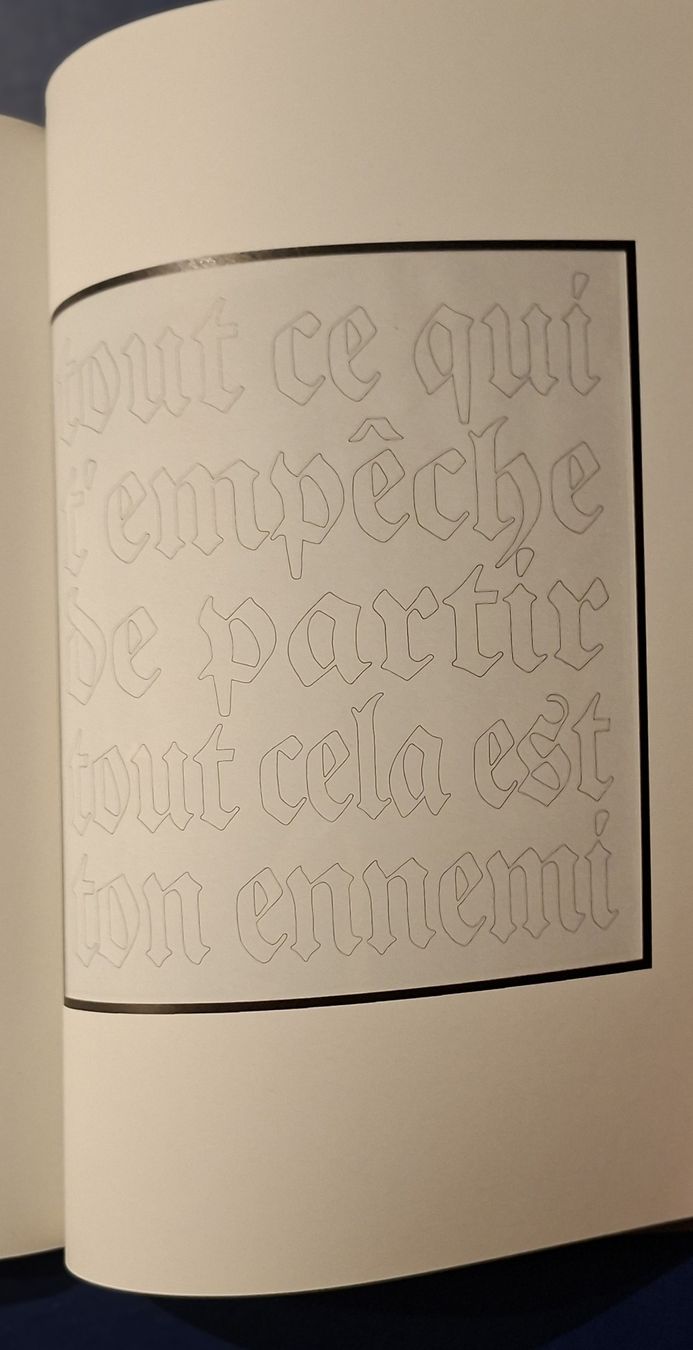 tout ce qui
t'empêche
de partir
tout cela est
ton ennemi